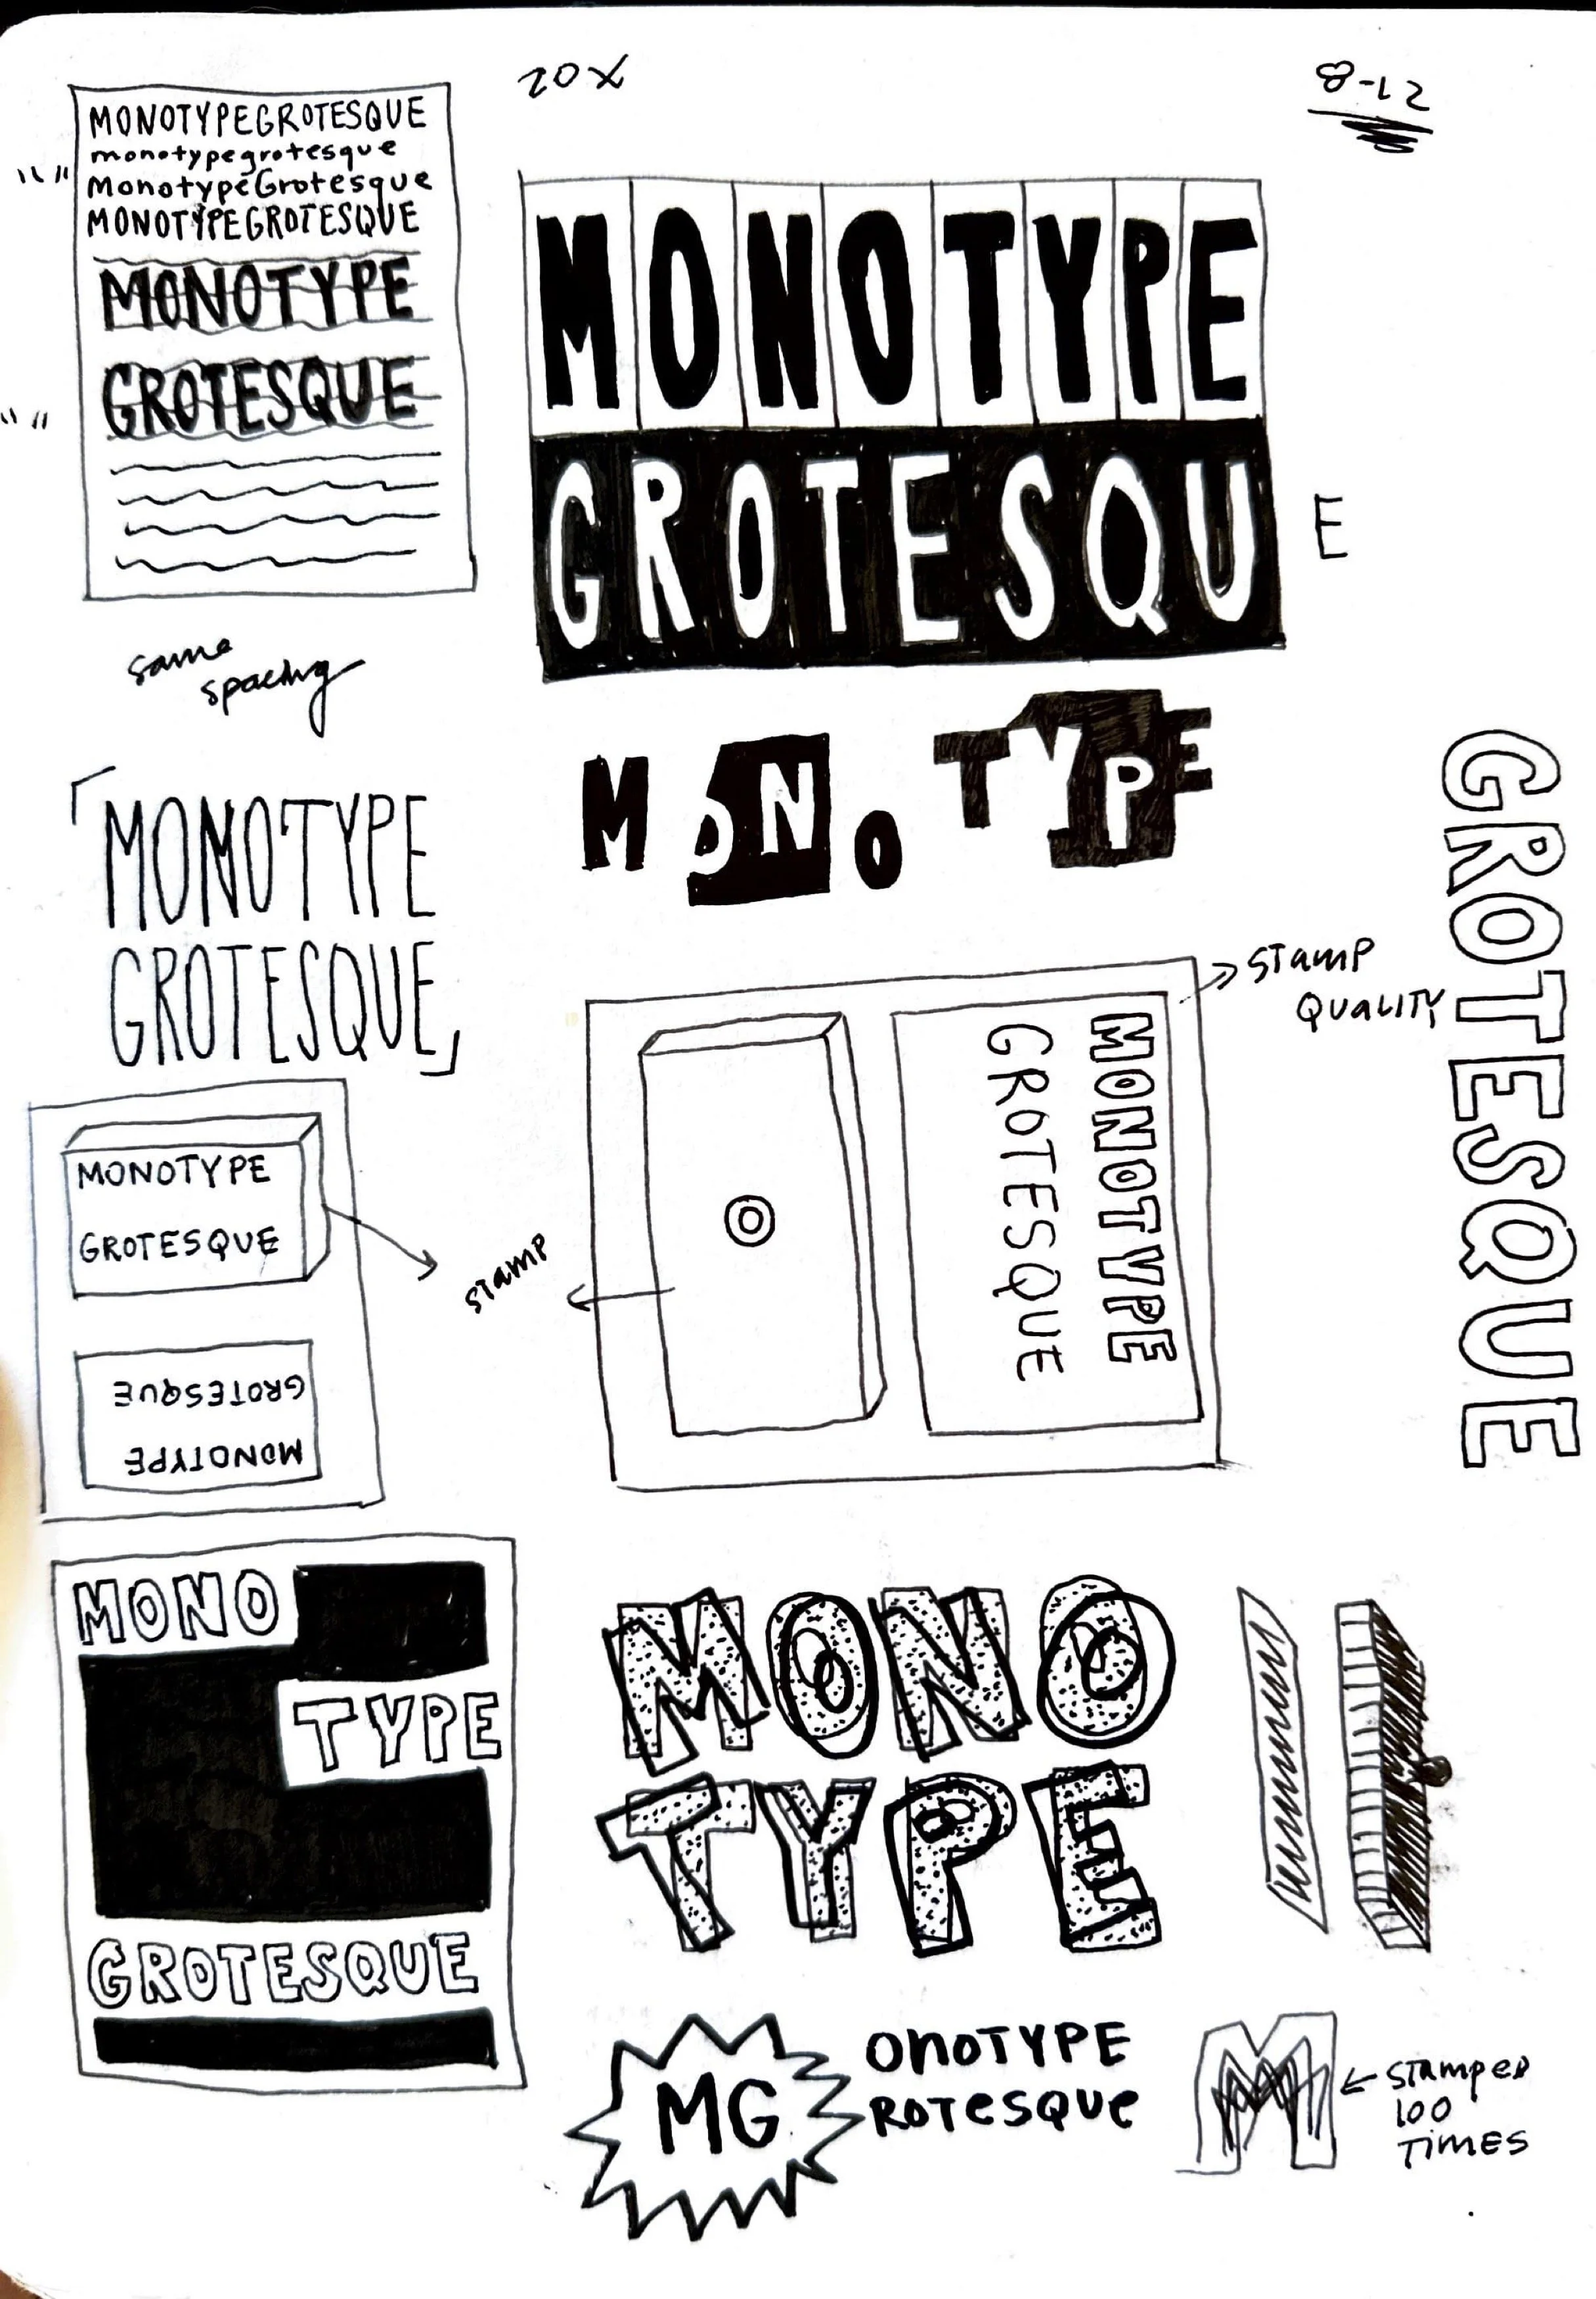 20X
8-12
MONOTYPEGROTESQUE
monotypegrotesque
MonotypeGrotesque
MONOTYPEGROTESQUE
MONOTYPE
GROTESQUE
same
spacing
MONOTYPE
GROTESQU
E
MONOTYPE
「MONOTYPE
GROTESQUE」
STAMP
QUALITY
GROTESQUE
MONOTYPE
GROTESQUE
MONOTYPE
GROTESQUE
STAMP
GROTESQUE
MONOTYPE
MONO
TYPE
GROTESQUE
MONO
TYPE
MG
ONOTYPE
ROTESQUE
M
STAMPED
100
TIMES